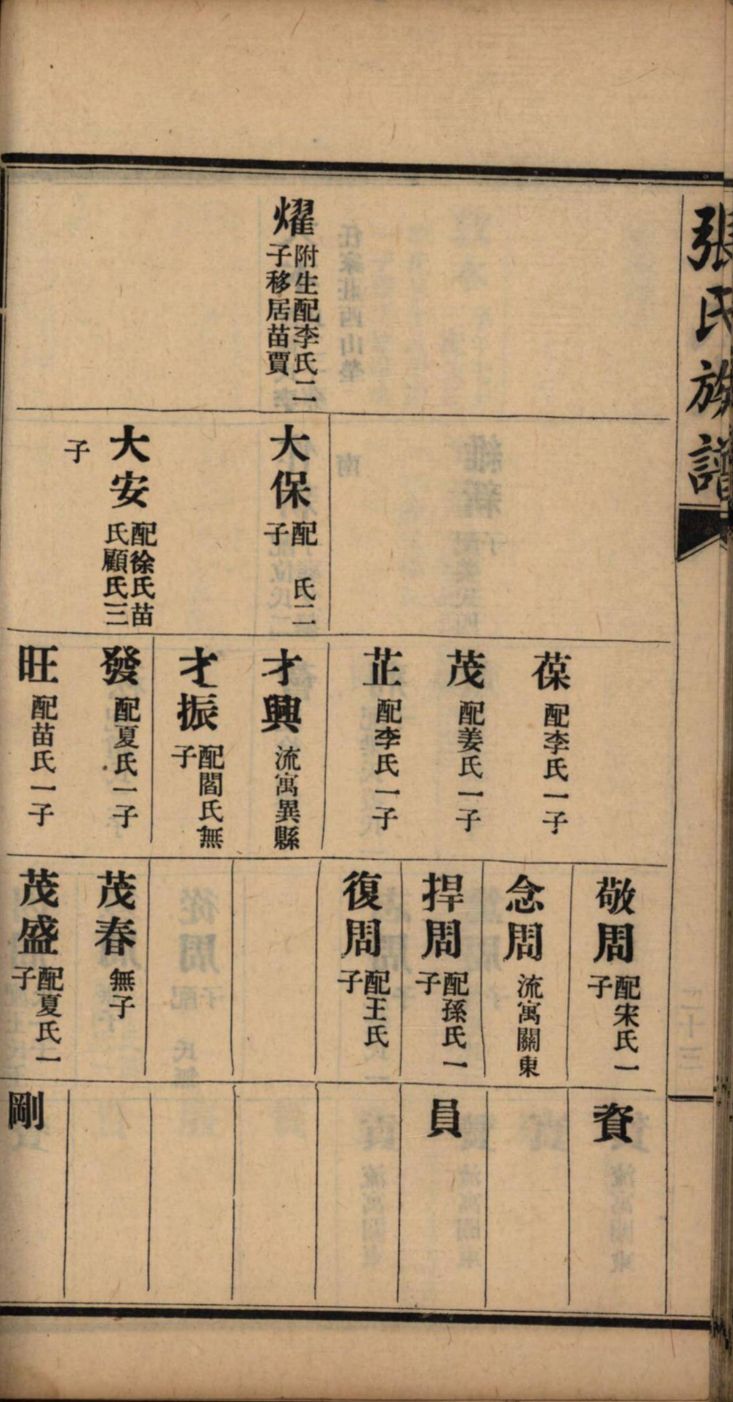 張氏族譜
燿 附生配李氏二
子移居苗賈
大保 配　氏二
子
大安 配徐氏苗
氏顧氏三
子
葆 配李氏一子
茂 配姜氏一子
芷 配李氏一子
才興 流寓異縣
才振 配閻氏無
子
發 配夏氏一子
旺 配苗氏一子
敬周 配宋氏一
子
念周 流寓關東
捍周 配孫氏一
子
復周 配王氏
子
茂春 無子
茂盛 配夏氏一
子
資
員
剛